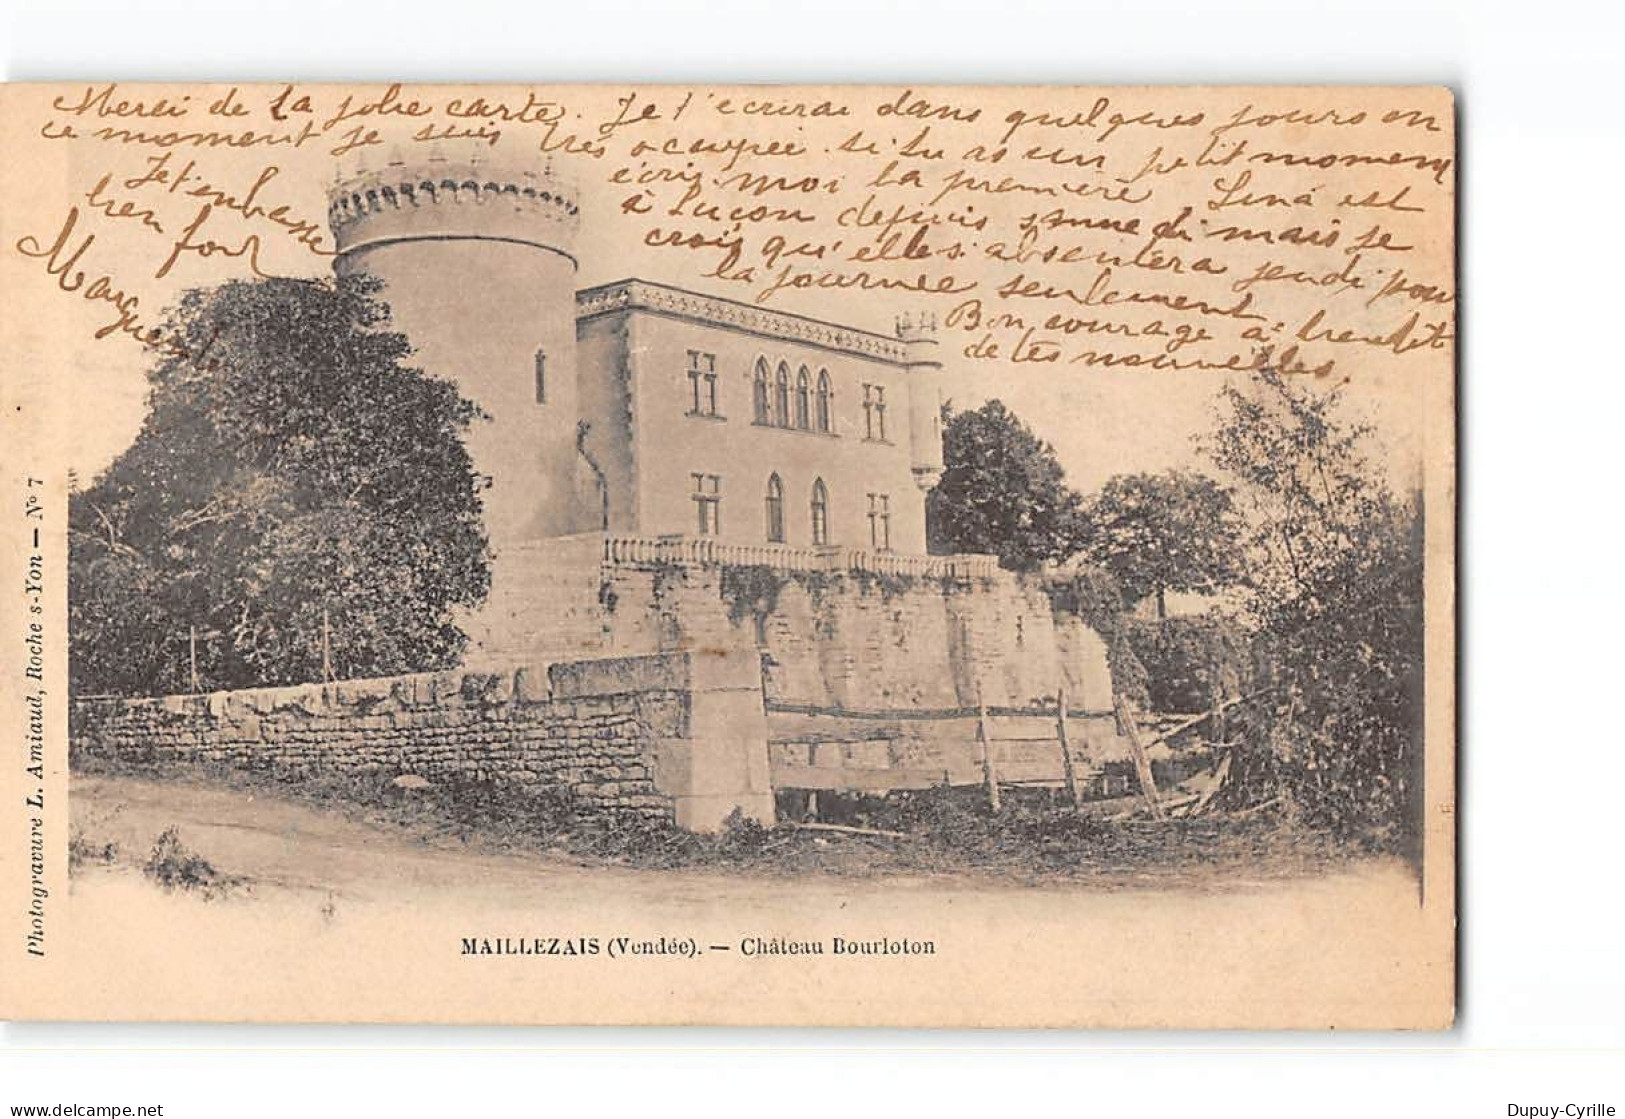 Merci de la jolie carte. Je t'écrirai dans quelques jours en
ce moment je suis très ocupée. si tu as un petit moment
écris moi la première Lina est
à Luçon depuis samedi mais je
crois qu'elle s'absentera jeudi pour
la journée seulement
Bon courage à bientôt
de tes nouvelles.
Je t'enbrasse
bien fort
Marguerite
Photogravure L. Amiaud, Roche s-Yon — N° 7
MAILLEZAIS (Vendée). — Château Bourloton
delcampe.net
Dupuy-Cyrille